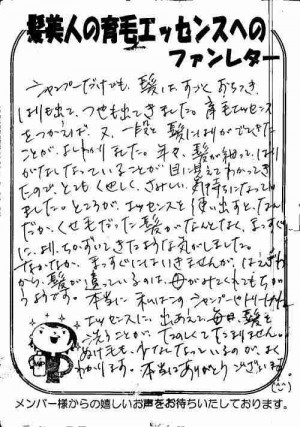 髪美人の育毛エッセンスへの
ファンレター
シャンプーだけでも、髪は、すごくおちつき、
はりも出て、つやも出てきました。育毛エッセンス
をつかえば、又、一段と髪にはりがでてきた
ことが、よくわかりました。年々、髪が細って、はり
がなくなっていることが目に見えてわかってきた
ので、とてもくやしく、さみしい気持ちになってい
ました。ところが、エッセンスを使い出すと、なん
だか、くせ毛だった髪がなんとなく、まっすぐ
に、おちかずいてきたような気がしました。
なかなか、まっすぐにはいきませんが、はえぎわ
から、髪が違っているのは、母がみてくれてもちが
うようです。本当に、私はこのシャンプーやトリートメント
エッセンスに出あえて、毎日髪を
洗うことが、たのしくてたまりません。
ぬけ毛も、少なくなっているのが、よく
わかります。本当にありがとうございます。
メンバー様からの嬉しいお声をお待ちいたしております。